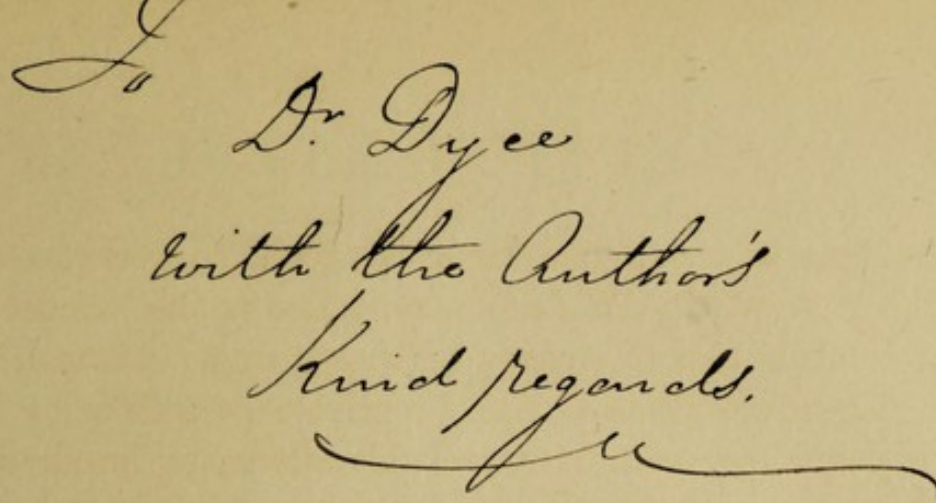 To
Dr Dyce
with the Author's
Kind regards.